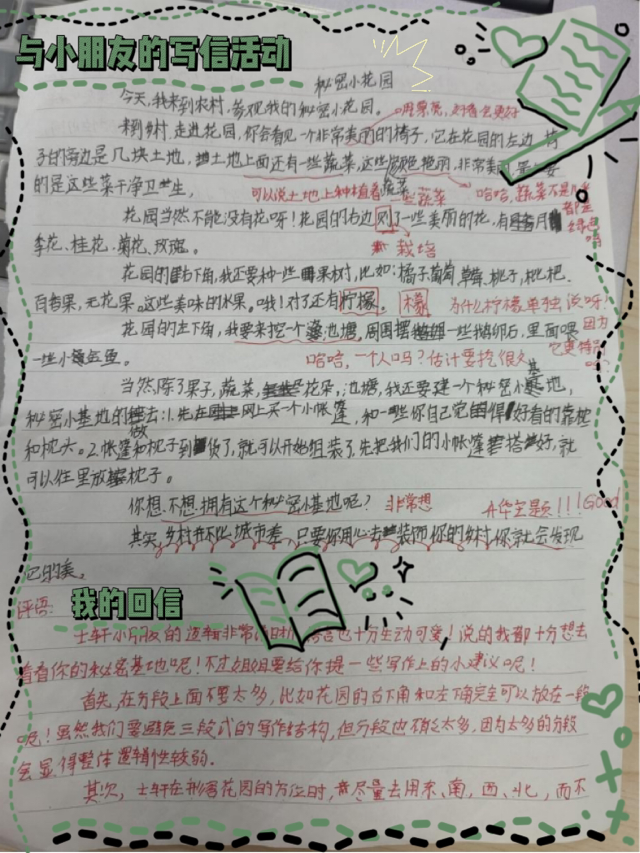 与小朋友的写信活动
秘密小花园
今天,我来到农村,参观我的秘密小花园。
用景亮,好看会更好
来到乡村,走进花园,你会看见一个非常美丽的椅子,它在花园的左边
子的旁边是几块土地,土地上面还有一些蔬菜,这些颜色艳丽,非常
的是这些菜干净卫生。
可以说土地上种植着蔬菜
哈哈,蔬菜不是
都是绿色吗
花园当然不能没有花呀!花园的右边 了一些美丽的花,有 月
李花、桂花、菊花、玫瑰。
栽培
花园的右下角,我还要种一些果树,比如:橘子葡萄、草莓、桃子、枇杷、
百香果,无花果。这些美味的水果。哦!对了还有柠檬。
檬
为什么柠檬单独说呀!
因为它更特别吗?
花园的左下角,我要来挖一个池塘,周围摆一些鹅卵石,里面喂
一些小金鱼。
哈哈,一个人吗?估计要挖很久
当然,除了果子,蔬菜,花朵,池塘,我还要建一个秘密小基地,
秘密小基地的做法:1.先在网上买一个小帐篷,和一些你自己觉得好看的靠枕
和枕头。2.帐篷和枕子到货了,就可以开始组装了,先把我们的小帐篷搭好,就
可以往里放枕子。
你想不想拥有这个秘密小基地呢?
非常想
升华主题!!!Good
其实,乡村并不比城市差,只要你用心去装饰你的乡村,你就会发现
它的美。
我的回信
评语:
士轩小朋友的逻辑非常清晰,语言也十分生动可爱!说的我都十分想去
看看你的秘密基地呢!不过姐姐要给你提一些写作上的小建议呢!
首先,在分段上面不要太多,比如花园的右下角和左下角完全可以放在一段
呢!虽然我们要避免三段式的写作结构,但分段也不能太多,因为太多的分段
会显得整体逻辑性较弱.
其次,士轩在形容花园的方位时,尽量去用东、南、西、北,而不